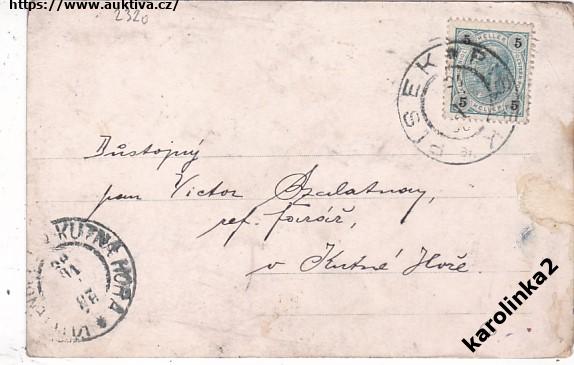 https://www.auktiva.cz/
2320
5 HELLER 5
5 HELLER 5
PISEK * PISEK *
Důstojný
pan Victor Szalatnay,
ref. farář,
v Kutné Hoře.
KUTNÁ HORA *
karolinka2